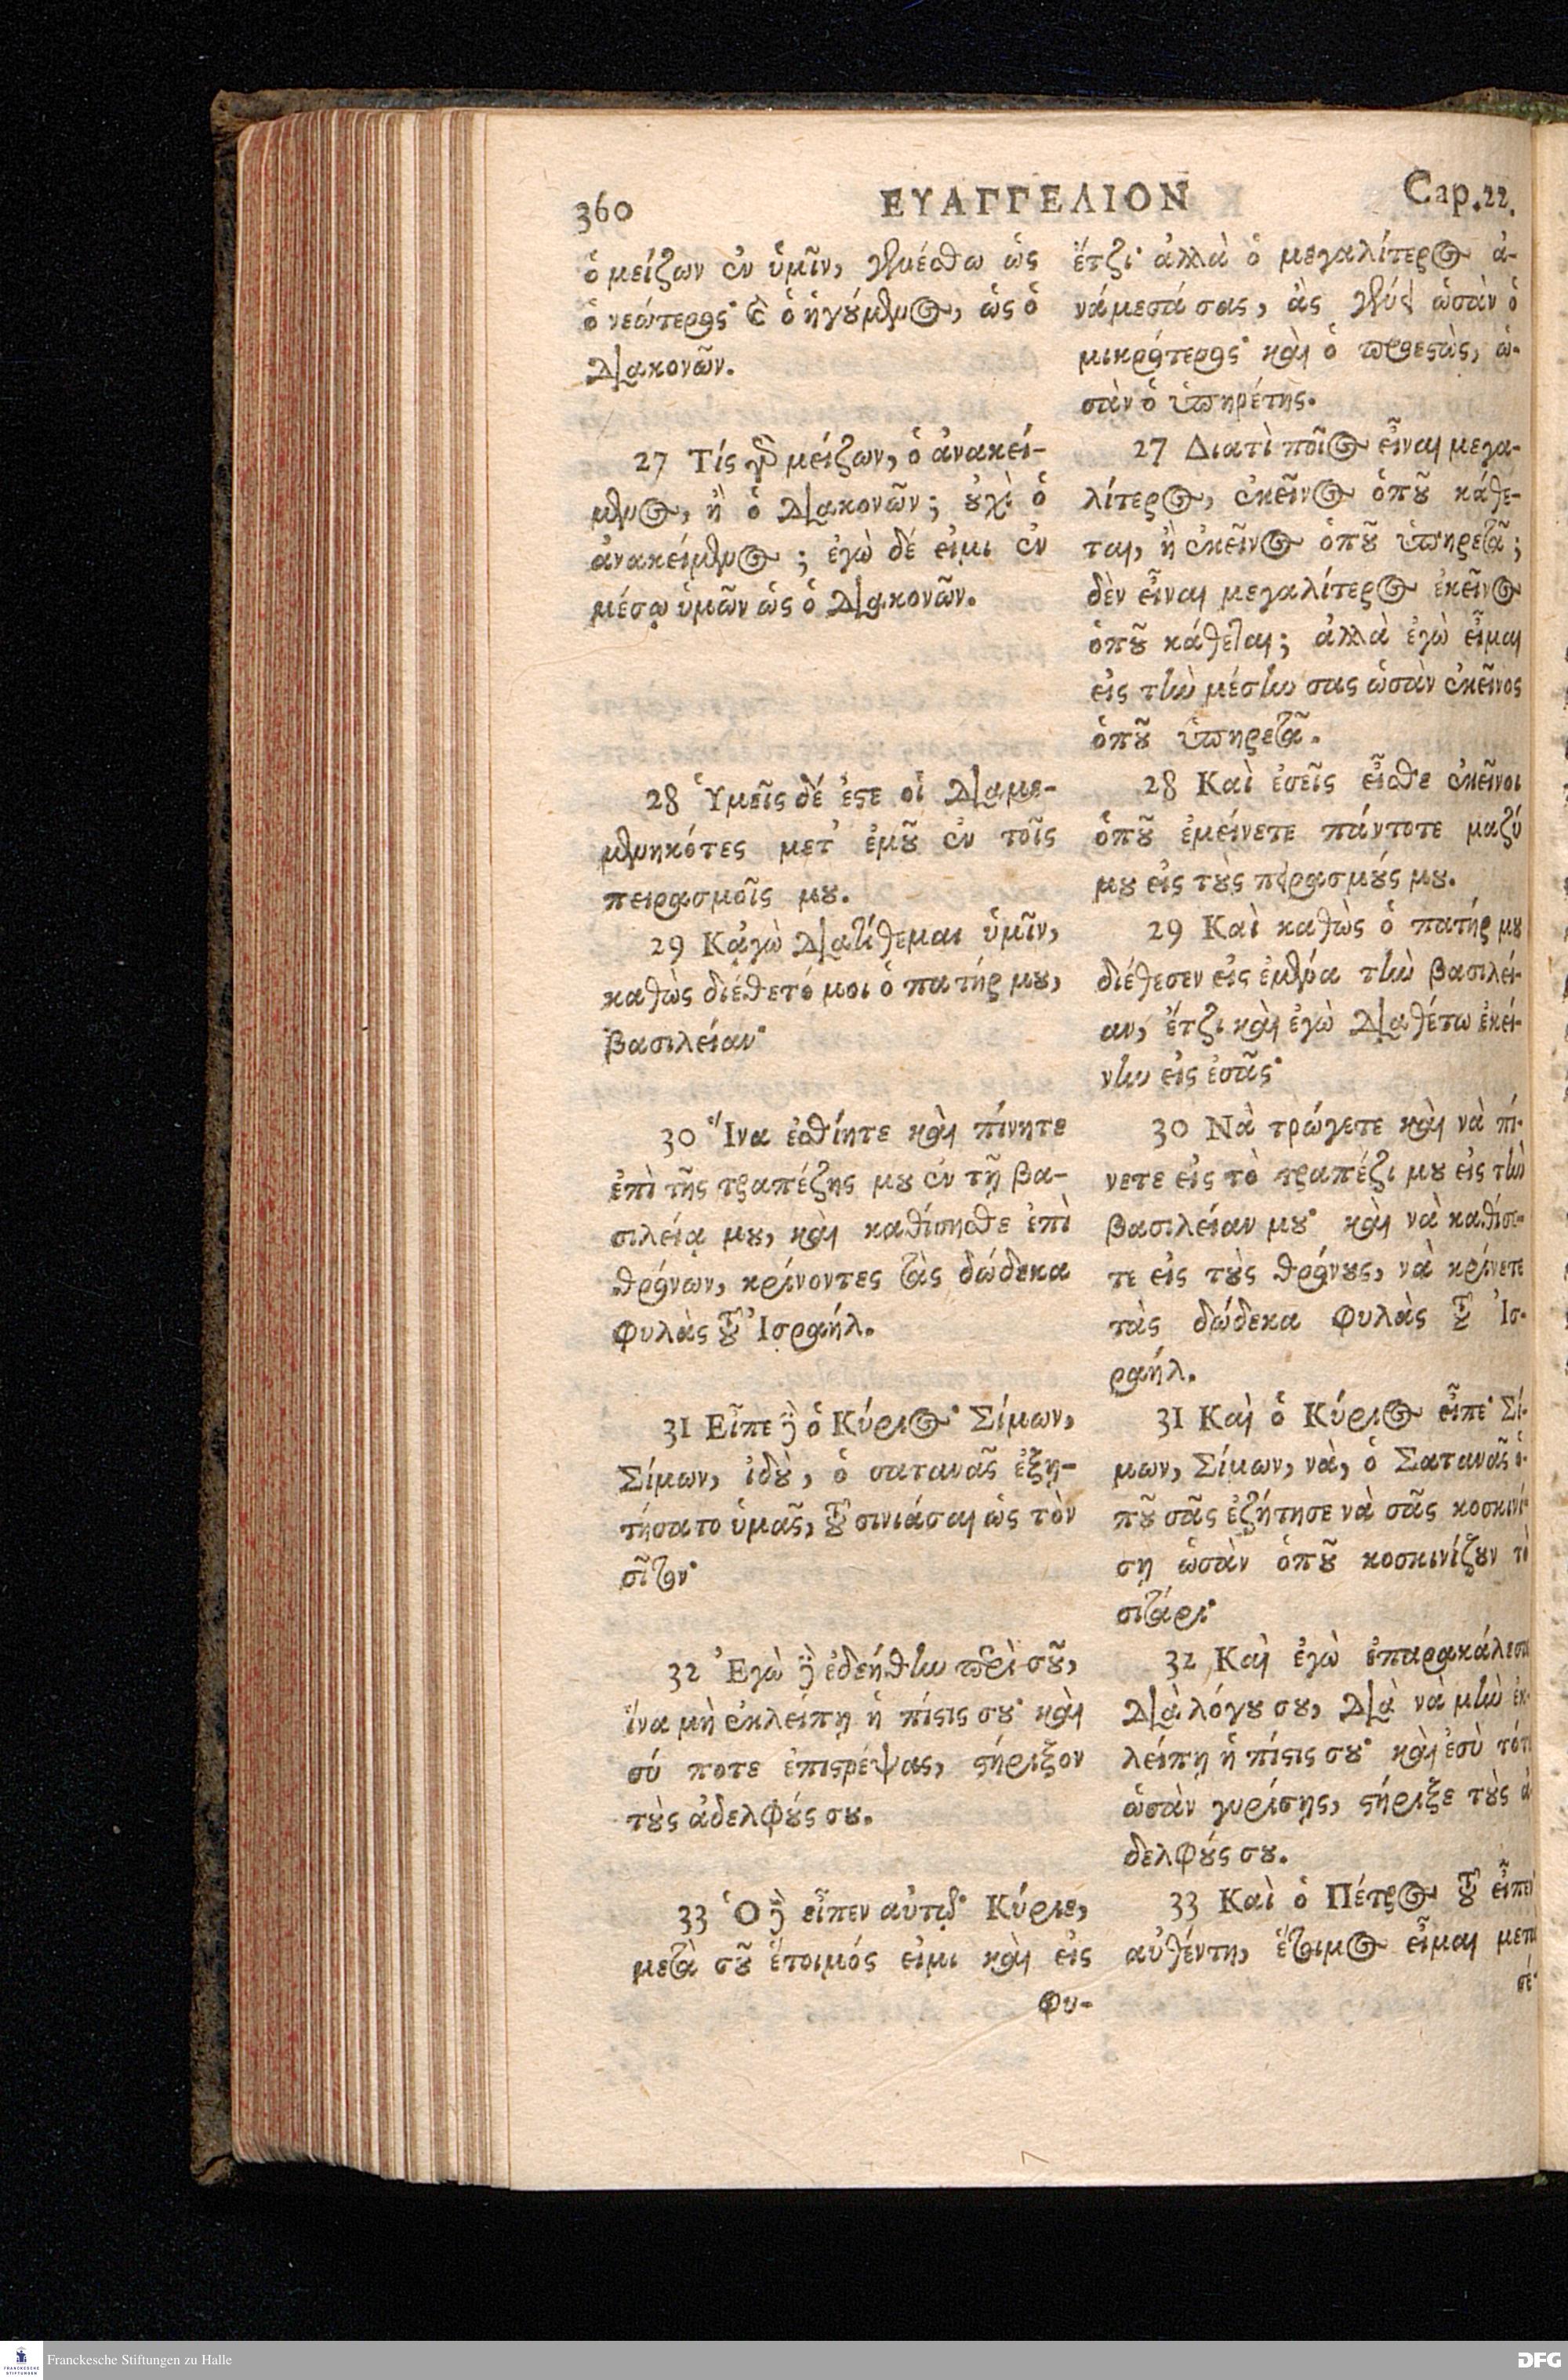 360 ΕΥΑΓΓΕΛΙΟΝ Cap.22.
ὁ μείζων ἐν ὑμῖν, γενέσθω ὡς
ὁ νεώτερος· καὶ ὁ ἡγούμενος, ὡς ὁ
διακονῶν.
27 Τίς γὰρ μείζων, ὁ ἀνακεί-
μενος, ἢ ὁ διακονῶν; οὐχὶ ὁ
ἀνακείμενος; ἐγὼ δέ εἰμι ἐν
μέσῳ ὑμῶν ὡς ὁ διακονῶν.
28 Ὑμεῖς δέ ἐστε οἱ διαμε-
μενηκότες μετ' ἐμοῦ ἐν τοῖς
πειρασμοῖς μου.
29 Κᾀγὼ διατίθεμαι ὑμῖν,
καθὼς διέθετό μοι ὁ πατήρ μου,
βασιλείαν·
30 Ἵνα ἐσθίητε καὶ πίνητε
ἐπὶ τῆς τραπέζης μου ἐν τῇ βα-
σιλείᾳ μου, καὶ καθίσησθε ἐπὶ
θρόνων, κρίνοντες τὰς δώδεκα
φυλὰς τοῦ Ἰσραήλ.
31 Εἶπε δὲ ὁ Κύριος· Σίμων,
Σίμων, ἰδοὺ, ὁ σατανᾶς ἐξῃ-
τήσατο ὑμᾶς, τοῦ σινιάσαι ὡς τὸν
σῖτον·
32 Ἐγὼ δὲ ἐδεήθην περὶ σοῦ,
ἵνα μὴ ἐκλείπῃ ἡ πίστις σου· καὶ
σύ ποτε ἐπιστρέψας, στήριξον
τοὺς ἀδελφούς σου.
33 Ὁ δὲ εἶπεν αὐτῷ· Κύριε,
μετὰ σοῦ ἕτοιμός εἰμι καὶ εἰς
φυ-
ἔτζι· ἀλλὰ ὁ μεγαλίτερος ἀ-
νάμεσά σας, ἂς γενῇ ὡσὰν ὁ
μικρότερος· καὶ ὁ προεστὼς, ὡ-
σὰν ὁ ὑπηρέτης.
27 Διατὶ ποῖος εἶναι μεγα-
λίτερος, ἐκεῖνος ὁποῦ κάθε-
ται, ἢ ἐκεῖνος ὁποῦ ὑπηρετᾷ;
δὲν εἶναι μεγαλίτερος ἐκεῖνος
ὁποῦ κάθεται; ἀλλὰ ἐγὼ εἶμαι
εἰς τὴν μέσην σας ὡσὰν ἐκεῖνος
ὁποῦ ὑπηρετᾷ.
28 Καὶ ἐσεῖς εἶσθε ἐκεῖνοι
ὁποῦ ἐμείνετε πάντοτε μαζύ
μου εἰς τοὺς πειρασμούς μου.
29 Καὶ καθὼς ὁ πατήρ μου
διέθεσεν εἰς ἐμένα τὴν βασιλεί-
αν, ἔτζι καὶ ἐγὼ διαθέτω ἐκεί-
νην εἰς ἐσᾶς·
30 Νὰ τρώγετε καὶ νὰ πί-
νετε εἰς τὸ τραπέζι μου εἰς τὴν
βασιλείαν μου· καὶ νὰ καθίσε-
τε εἰς τοὺς θρόνους, νὰ κρίνετε
τὰς δώδεκα φυλὰς τοῦ Ἰσ-
ραήλ.
31 Καὶ ὁ Κύριος εἶπε· Σί-
μων, Σίμων, νὰ, ὁ Σατανᾶς ὁ-
ποῦ σᾶς ἐζήτησε νὰ σᾶς κοσκινί-
σῃ ὡσὰν ὁποῦ κοσκινίζουν τὸ
σιτάρι·
32 Καὶ ἐγὼ ἐπαρακάλεσα
διὰ λόγου σου, διὰ νὰ μὴν ἐκ-
λείπῃ ἡ πίστις σου· καὶ ἐσὺ τότε
ὡσὰν γυρίσῃς, στήριξε τοὺς ἀ-
δελφούς σου.
33 Καὶ ὁ Πέτρος τοῦ εἶπεν
αὐθέντη, ἕτοιμος εἶμαι μετὰ
σέ·
Franckesche Stiftungen zu Halle
DFG